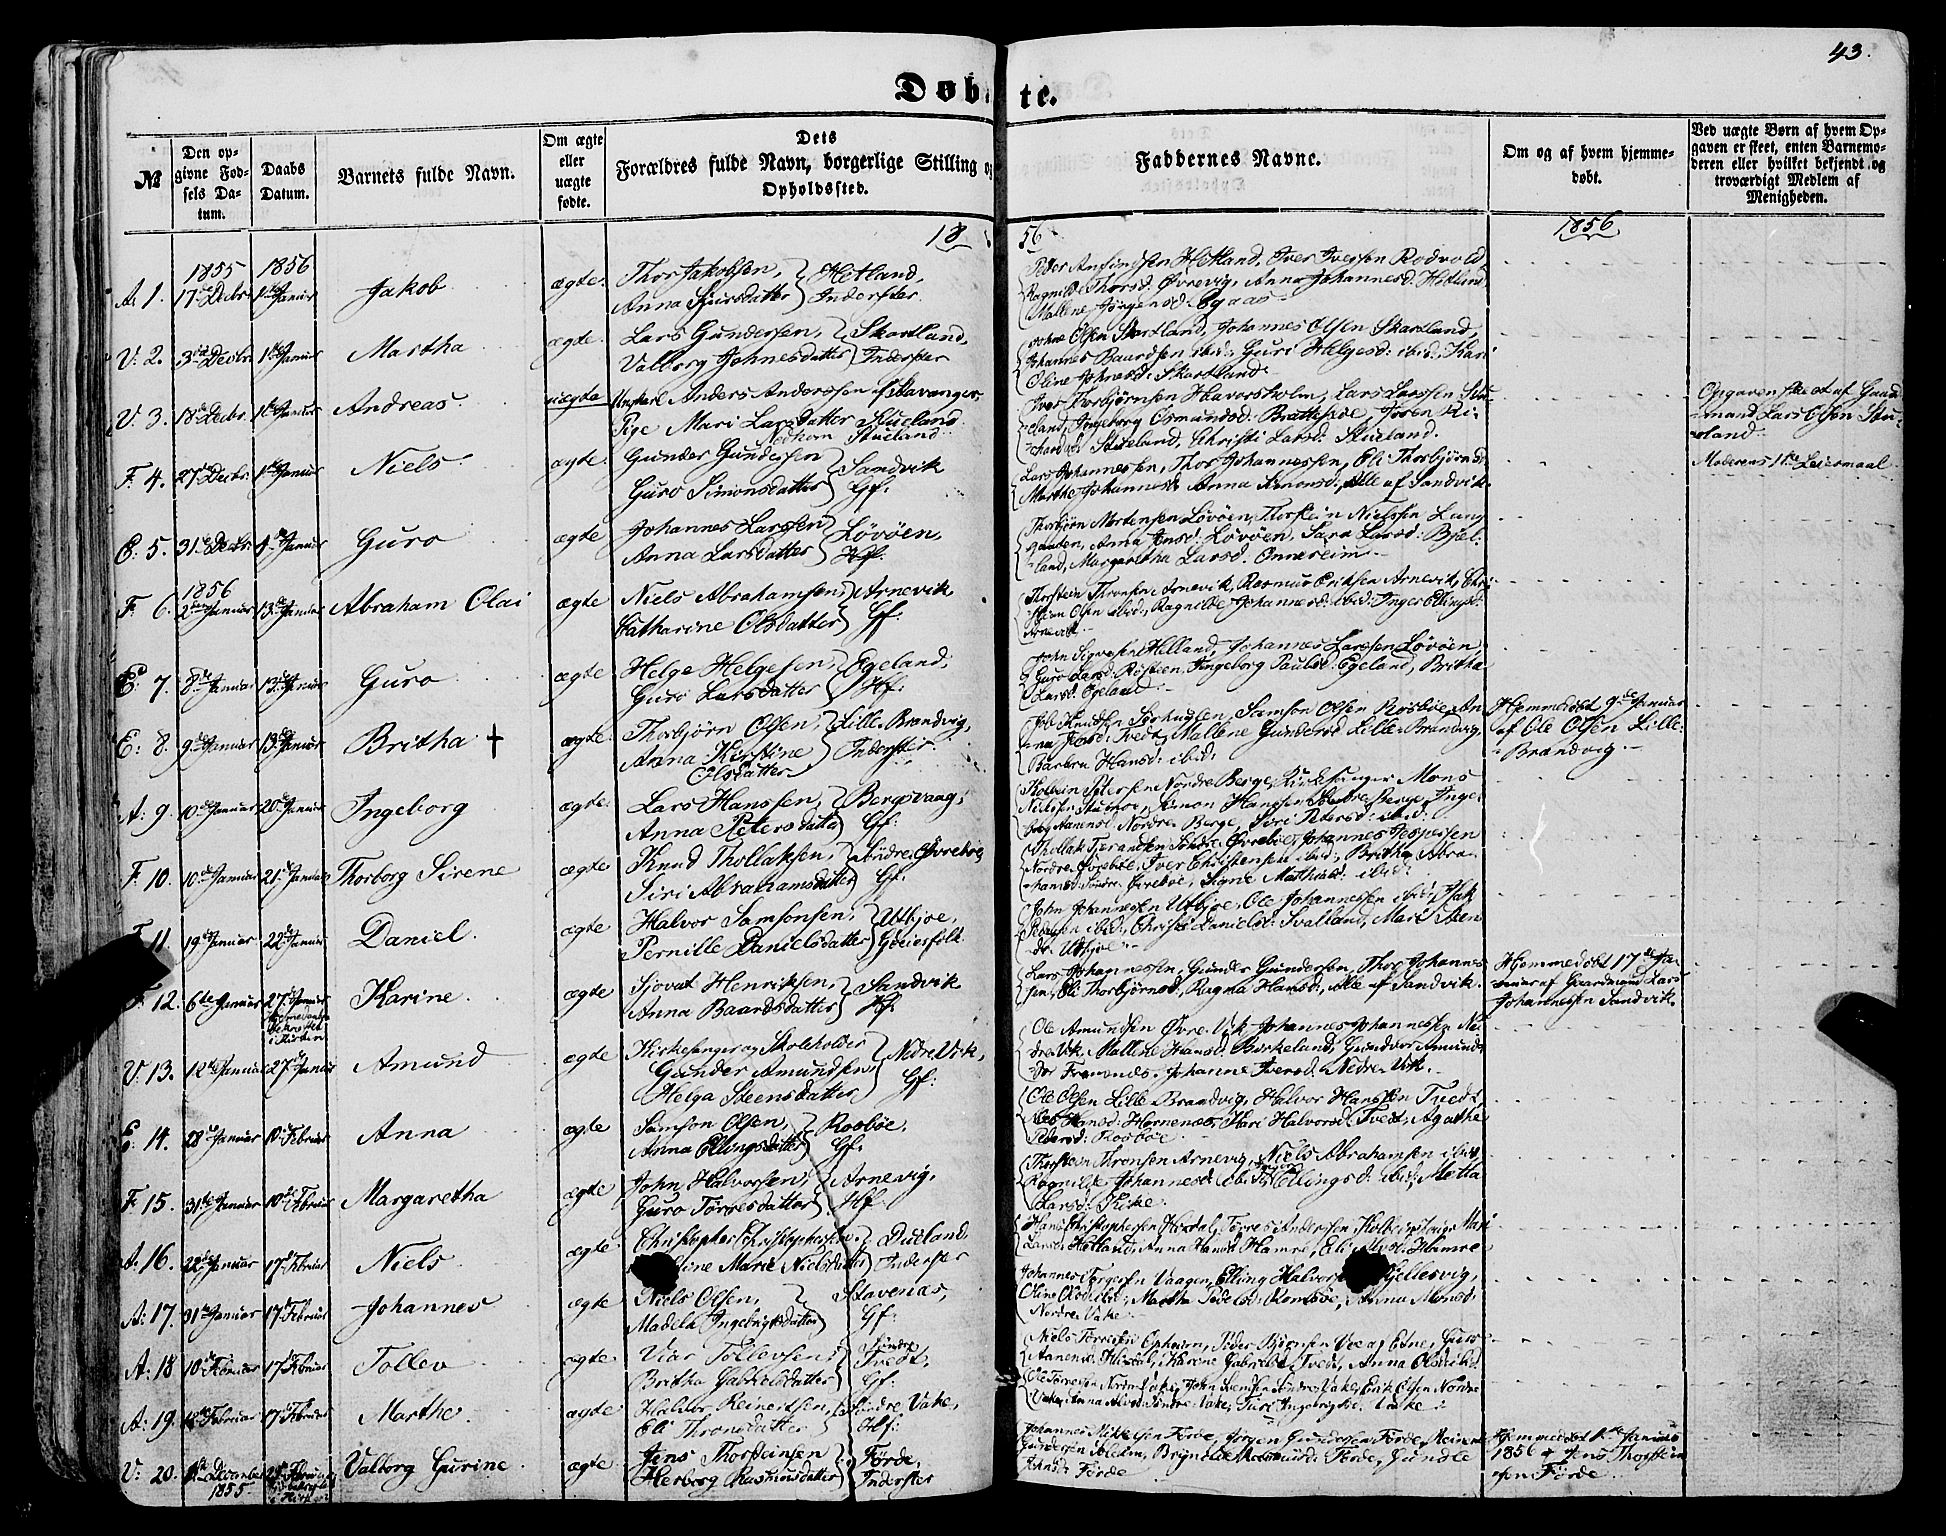 43.
Døbte.
№
Den opgivne Fødsels Datum.
Daabs Datum.
Barnets fulde Navn.
Om ægte eller uægte fødte.
Dets Forældres fulde Navn, borgerlige Stilling og Opholdssted.
Faddernes Navne.
Om og af hvem hjemmedøbt.
Ved uægte Børn af hvem Opgaven er skeet, enten Barnemoderen eller hvilket bekjendt og troværdigt Medlem af Menigheden.
1856
1856
1855 1856
A. 1. 17de Decbr. 1ste Januar Jakob ægte. Thor Jakobsen, Anna Sjursdatter } Hetland, Inderster.
Peder Amundsen Hetland, Iver Iversen Rødvold
Ragnilde Thorsd. Øvrevig, Anna Johannesd. Hetland,
Mallene Jørgensd.
V. 2. 3die Decbr. 1ste Januar Martha ægte. Lars Gundersen, Valborg Johnesdatter } Skartland, Inderster
Olsen Skartland, Johannes Olsen Skartland,
Johannes Baardsen ibid; Guri Helgesd: ibid; Kari
Oline Johnesd: Skartland.
V. 3. 18de Decbr. 1ste Januar Andreas uægte Ungkarl Anders Anderssen af Stavanger, Pige Mari Larsdatter Stueland
Iver Thorbjørnsen Havorsholm, Lars Larssen Stueland, Ingeborg Osmundsd: Brattesøe,
Stueland, Christi Larsd: Stueland.
Opgaven skeet af Gaardmand Lars Olsen Stueland.
Moderens 1ste Leiermaal
F. 4. 27de Decbr. 1ste Januar Niels ægte Gunder Gundersen Guro Simonsdatter } Sandvik Gf:
Lars Johannessen, Thor Johannessen, Eli Thorbjørnsd:
Marthe Johannesd: Anna Simonsd:, Alle af Sandvik.
E. 5. 31te Decbr. Januar Guro ægte Johannes Larssen Anna Larsdatter } Løvøen, Hf.
Thorbjørn Mortensen Løvøen, Thorstein Nielssen
Anna Jensd: Løvøen, Sara Larsd: Bjelland, Margaretha Larsd. Onnereim.
1856
F. 6. 2den Januar 13de Januar Abraham Olai ægte Niels Abrahamsen, Catharine Olsdatter } Arnevik, Gf.
Thorstein Thronsen Arnevik, Rasmus Eriksen Arnevik,
Olsen ibid: Ragnilde Johannesd: ibid: Inger Ellingsd: Arnevik.
E. 7. 8de Januar 13de Januar Guro ægte Helge Helgesen, Guro Larsdatter } Egeland, Hf.
John Sigvasen Helland, Johannes Larssen Løvøen,
Guro Larsd: Røsteen, Ingeborg Paulsd: Egeland, Britha
Larsd: Egeland.
E: 8. 9de Januar 13de Januar Britha † ægte Thorbjørn Olsen, Anna Kirstine Olsdatter } Lille-Brandvig, Inderster.
Job Knudsen Sørhuglen, Samson Olsen Rosbøe,
Tvedt, Mallene Gundersd: Lille-Brandvig,
Barbra Hansd: ibid:
Hjemmedøbt 9de Januar af Ole Olsen Lille-Brandvig.
A: 9. 10de Januar 20de Januar Ingeborg ægte Lars Hanssen, Anna Petersdatter } Bergsvaag, Gf:
Kolbein Petersen Nordre Berge, Kirkesanger Mons
Nielsen Stueroe, Simon Hanssen Søndre Berge, Ingeborg Aanensd: Nordre Berge, Siri Petersd: ibid:
F. 10. 10de Januar 21de Januar Thorborg Sirene ægte Knud Thollaksen, Siri Abrahamsdatter } Søndre Øvrebøe, Gf.
Thollak Søndre Øvrebøe, Johannes Jespersen
Nordre Øvrebøe, Iver Christensen ibid:, Britha Abrahamsd: Søndre Øvrebøe, Signe Mathiasd: ibid:
F. 11. 19de Januar 22de Januar Daniel ægte Halvor Samsonsen, Pernille Danielsdatter } Utbjoe, Gaiersfolk
John Johannesen Utbjoe, Ole Johannessen ibid:,
Pedersen ibid:, Christi Danielsd: Svalland, Mari
Utbjoe.
F. 12. 6te Januar 27de Januar Karine ægte Sjovat Henriksen, Anna Baardsdatter } Sandvik Hf.
Lars Johannessen, Gunder Gundersen, Thor Johannessen, Eli Thorbjørnsd:, Ragna Hansd:, Alle af Sandvik.
Hjemmedøbt 17de Januar af Gaardmand Lars Johannessen Sandvik.
V. 13. 12te Januar 27de Januar Amund ægte Kirkesanger og Skoleholder Gunder Amundsen, Helga Steensdatter } Nedre Vik, Gf:
Ole Amundsen Øvre Vik, Johannes Johannessen Nedre Vik, Mallene Hansd: Birkeland, Gundvor
Johanne Iversd: Nedre Vik.
E. 14. 28de Januar 10de Februar Anna ægte Samson Olsen, Anna Ellingsdatter } Rosbøe, Gf.
Ole Olsen Lille Brandvig, Halvor Hanssen Tvedt
Hansd: Hornenæs, Kari Halvorsd: Tvedt, Agathe
Pedersd: Rosbøe.
F. 15. 31te Januar 10de Februar Margaretha ægte John Halvorsen, Guro Torresdatter } Arnevig, Hf.
Thorstein Thronsen Arnevig, Niels Abrahamsen ibid,
Ragnilde Johannesd: ibid: Ellingsd: ibid, Metta
Larsd:
A. 16. 22de Januar 17de Februar Niels ægte. Christopher Christophersen, Marie Nielsdatter } Dueland, Inderster
Hans Christophersen, Torres Andersen,
Larsd: Helland, Anna Hansd: Hamre, Eli Hamre
A: 17. 31te Januar 17de Februar Johannes ægte Niels Olsen, Madela Ingebrigtsdatter } Stavenæs, Gf:
Johannes Torgersen Vaagen, Elling Halvorsen Kjellesvig,
Martha Pedersd: Romsøe, Anna Monsd:
Nordre Vake.
A: 18 10de Februar 17de Februar Tollev ægte Viar Tollevsen, Britha Gabrielsdatter } Søndre Tvedt, Gf:
Niels Torresen Opheim, Peder Bjørnsen Vee af Etne,
Aanensd: Karine Gabrielsd: Tvedt, Anna Olsd: ibid.
A: 19. Februar 17de Februar Marthe ægte Haldor Reinertsen, Eli Thronsdatter } Søndre Vake, Hf:
Ole Torresen Nordre Vake, John Søndre Vake, Erik Olsen Nordre
Vake, Anna Søndre Vake, Turi Ingebrigtsd: Vake.
V: 20. December 1855. Februar Valborg Gurine ægte Jens Thorsteinsen, Herborg Rasmusdatter } Førde, Inderster
Johannes Mikkelsen Førde, Jørgen Gundersen Førde,
Gundersen Solem, Førde, Gunele
Johnsd: Førde
Hjemmedøbt 1ste Januar 1856 af Jens Thorsteinsen Førde.